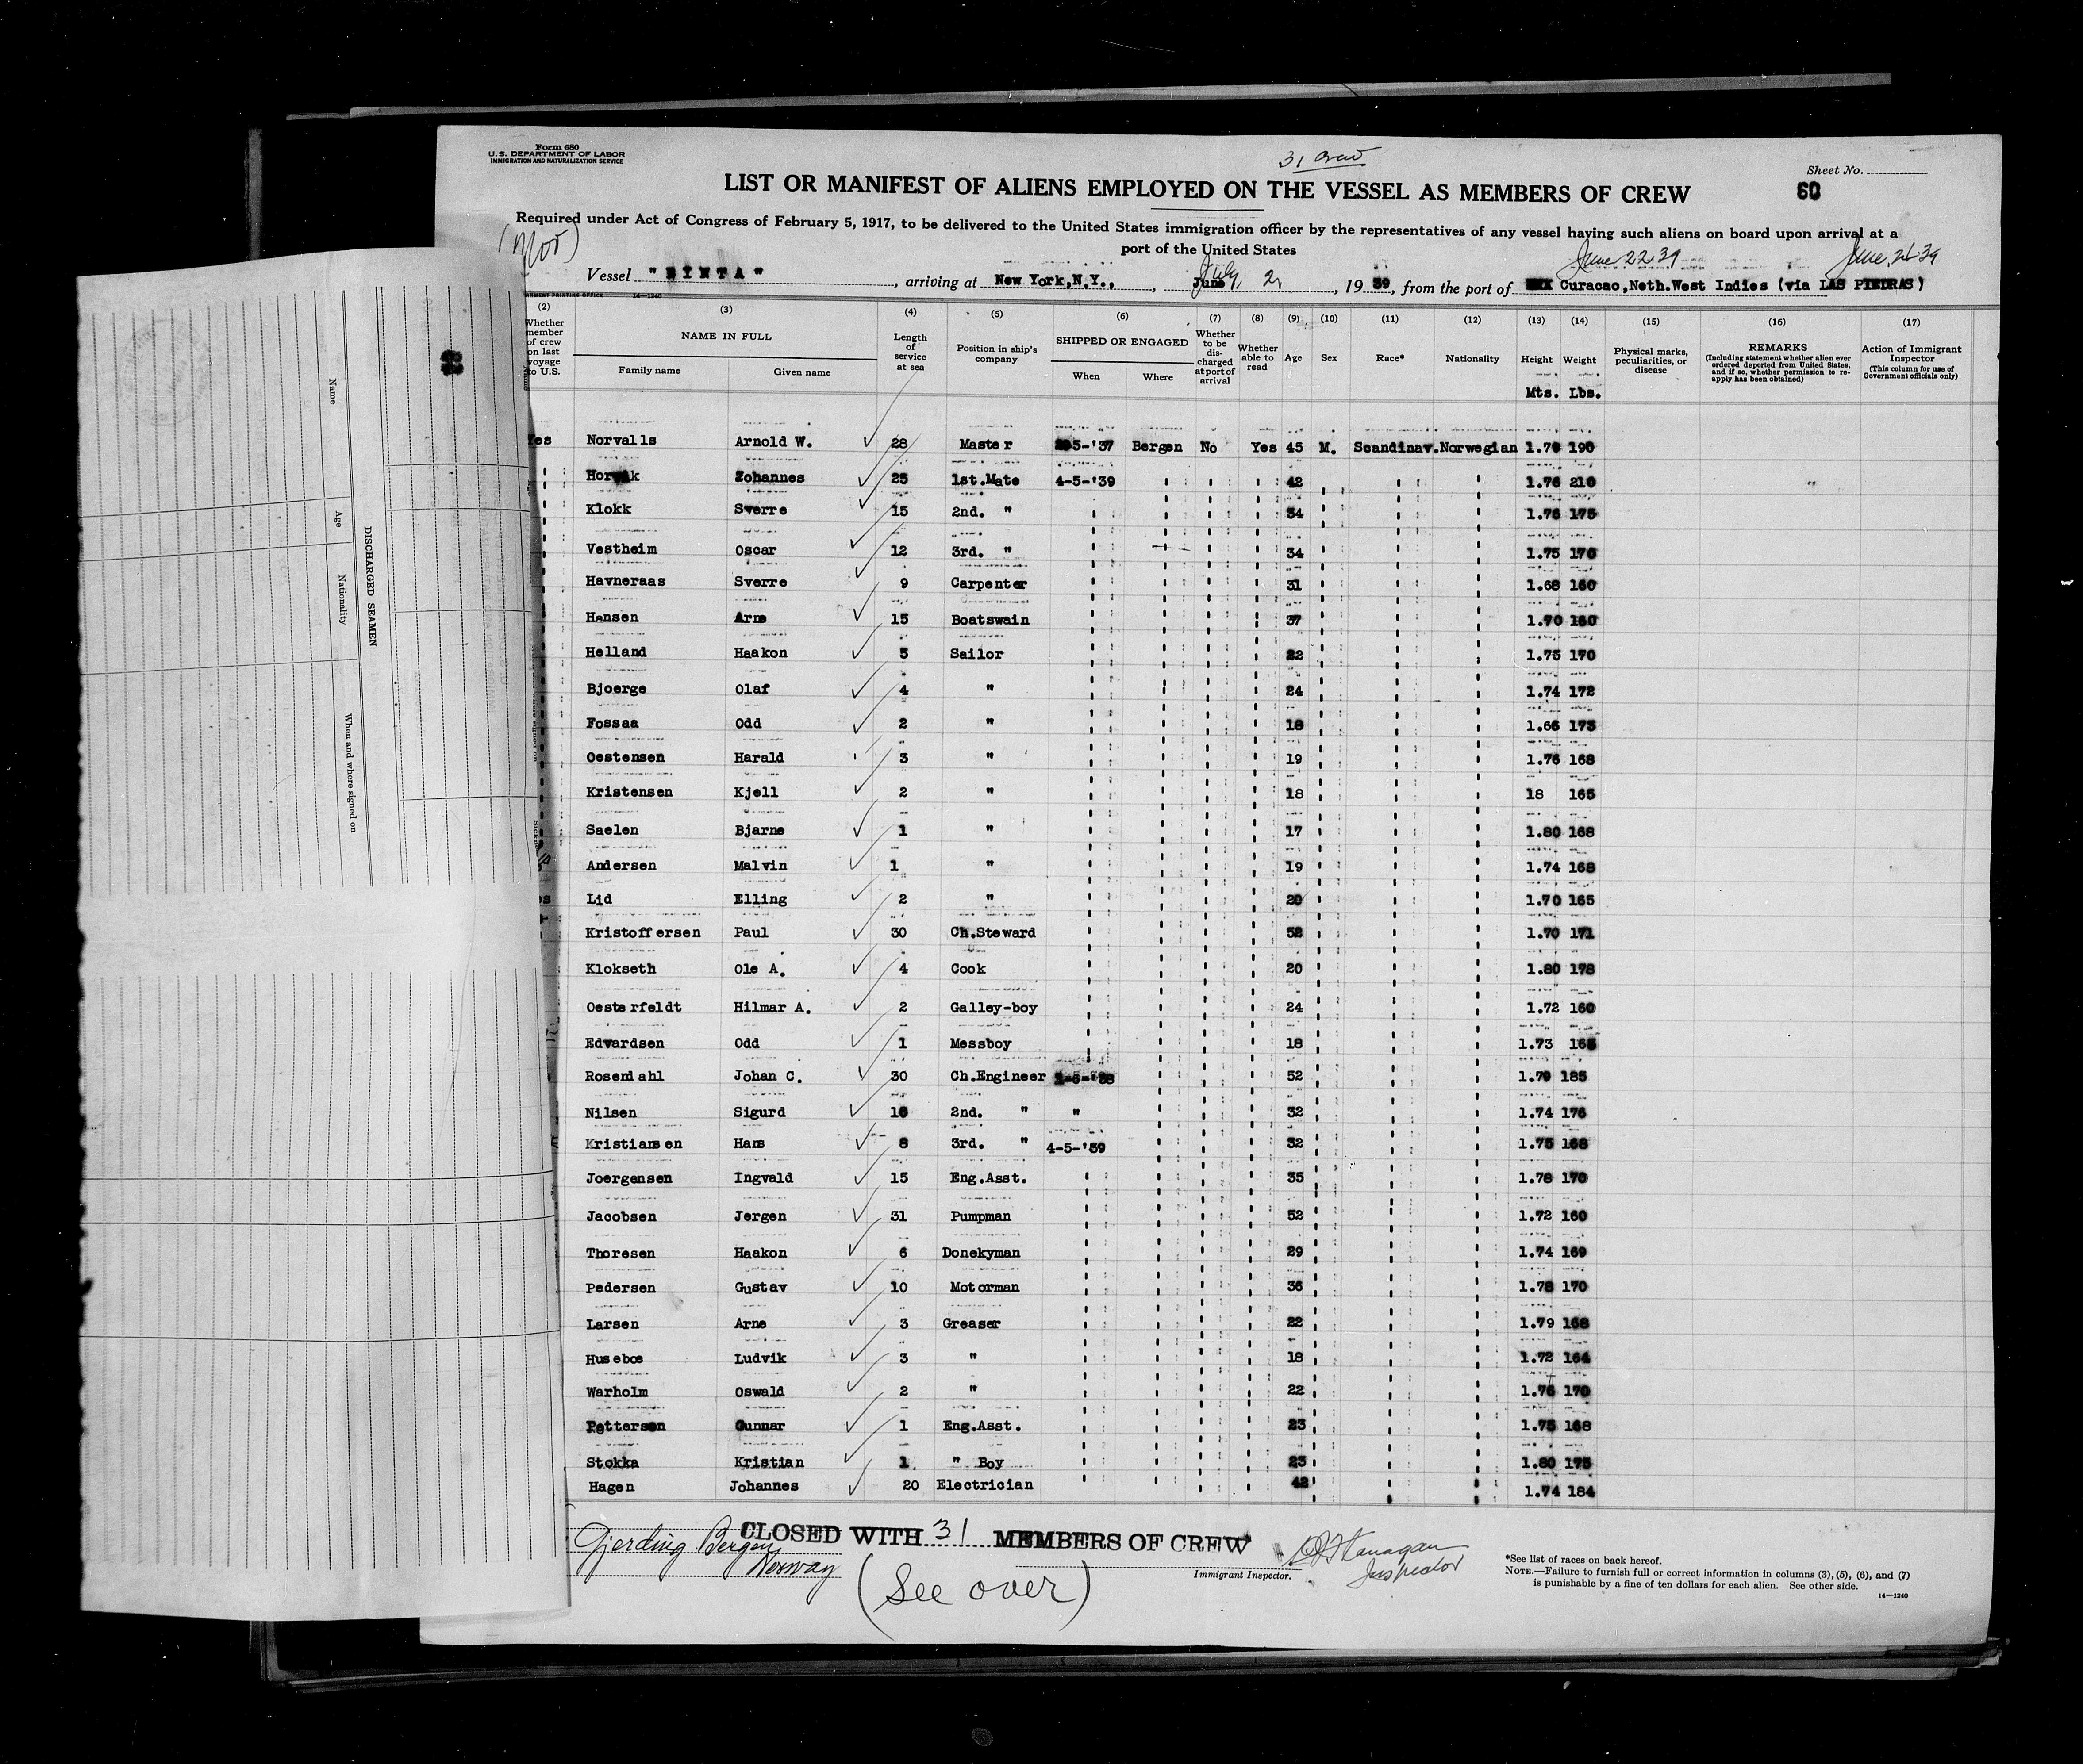 Form 680
U.S. DEPARTMENT OF LABOR
IMMIGRATION AND NATURALIZATION SERVICE
31 crew
Sheet No.
60
LIST OR MANIFEST OF ALIENS EMPLOYED ON THE VESSEL AS MEMBERS OF CREW
Required under Act of Congress of February 5, 1917, to be delivered to the United States immigration officer by the representatives of any vessel having such aliens on board upon arrival at a
port of the United States
June 22 39
Vessel , arriving at New York,N.Y., , July 2, , 19 39, from the port of Curacao,Neth.West Indies (via LAS PIEDRAS)
(2) (3) (4) (5) (6) (7) (8) (9) (10) (11) (12) (13) (14) (15) (16) (17)
Whether member of crew on last voyage to U.S.
NAME IN FULL
Family name Given name
Length of service at sea
Position in ship's company
SHIPPED OR ENGAGED
When Where
Whether to be discharged at port of arrival
Whether able to read
Age
Sex
Race*
Nationality
Height
Mts.
Weight
Lbs.
Physical marks, peculiarities, or disease
REMARKS
(Including statement whether alien ever ordered deported from United States, and if so, whether permission to reapply has been obtained)
Action of Immigrant Inspector
(This column for use of Government officials only)
Norvalls Arnold W. 28 Master 5-'37 Bergen No Yes 45 M. Scandinav. Norwegian 1.79 190
Zohannes 25 1st.Mate 4-5-'39 " " " " 42 " " " 1.76 210
Klokk Sverre 15 2nd. " " " " " 34 " " " 1.76 175
Vestheim Oscar 12 3rd. " " " " " 34 " " " 1.75 170
Havneraas Sverre 9 Carpenter " " " " 31 " " " 1.68 160
Hansen Arne 15 Boatswain " " " " 37 " " " 1.70 160
Helland Haakon 5 Sailor " " " " 22 " " " 1.75 170
Bjoerge Olaf 4 " " " " " 24 " " " 1.74 172
Fossaa Odd 2 " " " " " 18 " " " 1.66 173
Oestensen Harald 3 " " " " " 19 " " " 1.76 168
Kristensen Kjell 2 " " " " " 18 " " " 18 165
Saelen Bjarne 1 " " " " " 17 " " " 1.80 168
Andersen Malvin 1 " " " " " 19 " " " 1.74 168
Lid Elling 2 " " " " " 20 " " " 1.70 165
Kristoffersen Paul 30 Ch.Steward " " " " 52 " " " 1.70 171
Klokseth Ole A. 4 Cook " " " " 20 " " " 1.80 178
Oesterfeldt Hilmar A. 2 Galley-boy " " " " 24 " " " 1.72 160
Edvardsen Odd 1 Messboy " " " " 18 " " " 1.73
Rosendahl Johan C. 30 Ch.Engineer " " " 52 " " " 1.79 185
Nilsen Sigurd 16 2nd. " " " " " 32 " " " 1.74 176
Kristiansen Hans 8 3rd. " 4-5-'39 " " " 32 " " " 1.75 168
Joergensen Ingvald 15 Eng.Asst. " " " " 35 " " " 1.78 170
Jacobsen Jergen 31 Pumpman " " " " 52 " " " 1.72 160
Thoresen Haakon 6 Donekyman " " " " 29 " " " 1.74 169
Pedersen Gustav 10 Motorman " " " " 36 " " " 1.78 170
Larsen Arne 3 Greaser " " " " 22 " " " 1.79 168
Huseboe Ludvik 3 " " " " " 18 " " " 1.72 164
Warholm Oswald 2 " " " " " 22 " " " 1.76 170
Pettersen Gunnar 1 Eng.Asst. " " " " 23 " " " 1.75 168
Stokka Kristian 1 " Boy " " " " 23 " " " 1.80 175
Hagen Johannes 20 Electrician " " " " 42 " " " 1.74 184
CLOSED WITH 31 MEMBERS OF CREW
Gjerding Bergen
Norway
(See over)
Flanagan
Inspector
Immigrant Inspector.
*See list of races on back hereof.
NOTE.—Failure to furnish full or correct information in columns (3), (5), (6), and (7)
is punishable by a fine of ten dollars for each alien. See other side.
14—1240
DISCHARGED SEAMEN
Name
Age
Nationality
When and where signed on